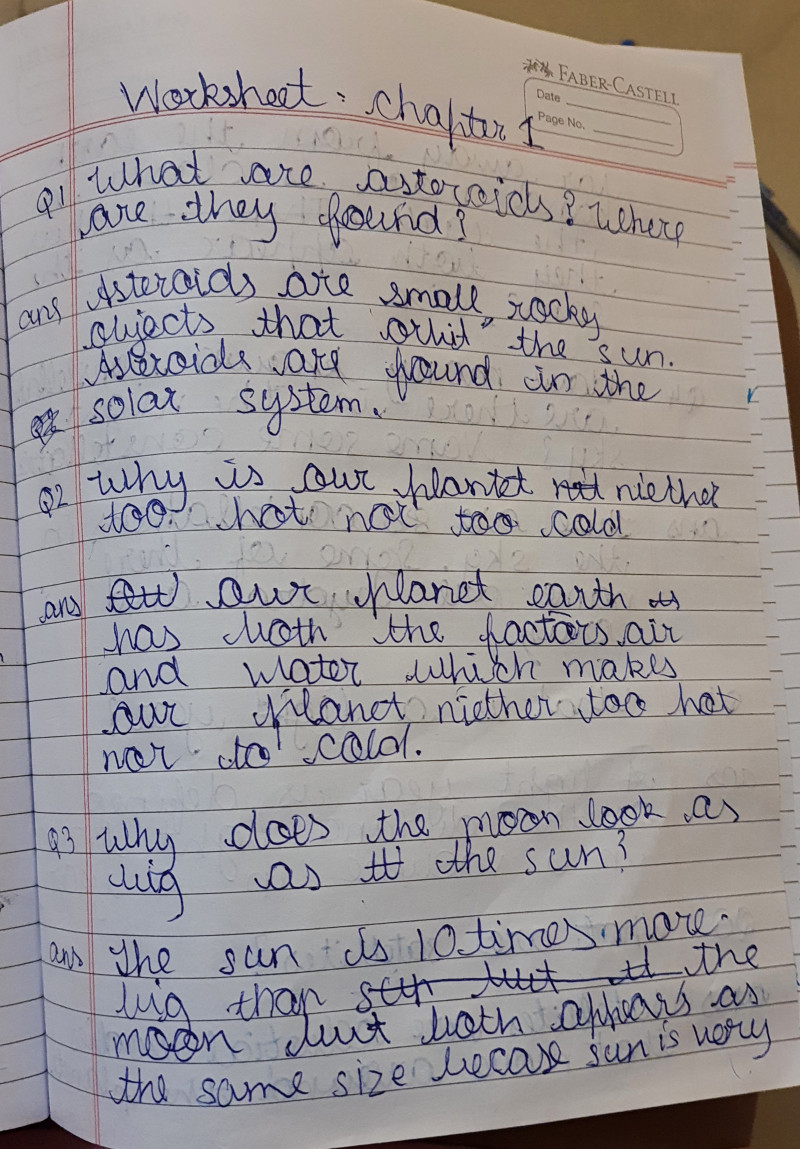 FABER-CASTELL
Date
Page No.
Worksheet : Chapter 1
Q1 What are asteroids? Where
are they found?
ans Asteroids are small, rocky
objects that orbit the sun.
Asteroids are found in the
solar system.
Q2 Why is our plantet niether
too hot nor too cold
ans our planet earth
has both the factors air
and water which makes
our planet niether too hot
nor to cold.
Q3 Why does the moon look as
big as the sun?
ans The sun is 10 times more
big than the
moon but both appears as
the same size becase sun is very